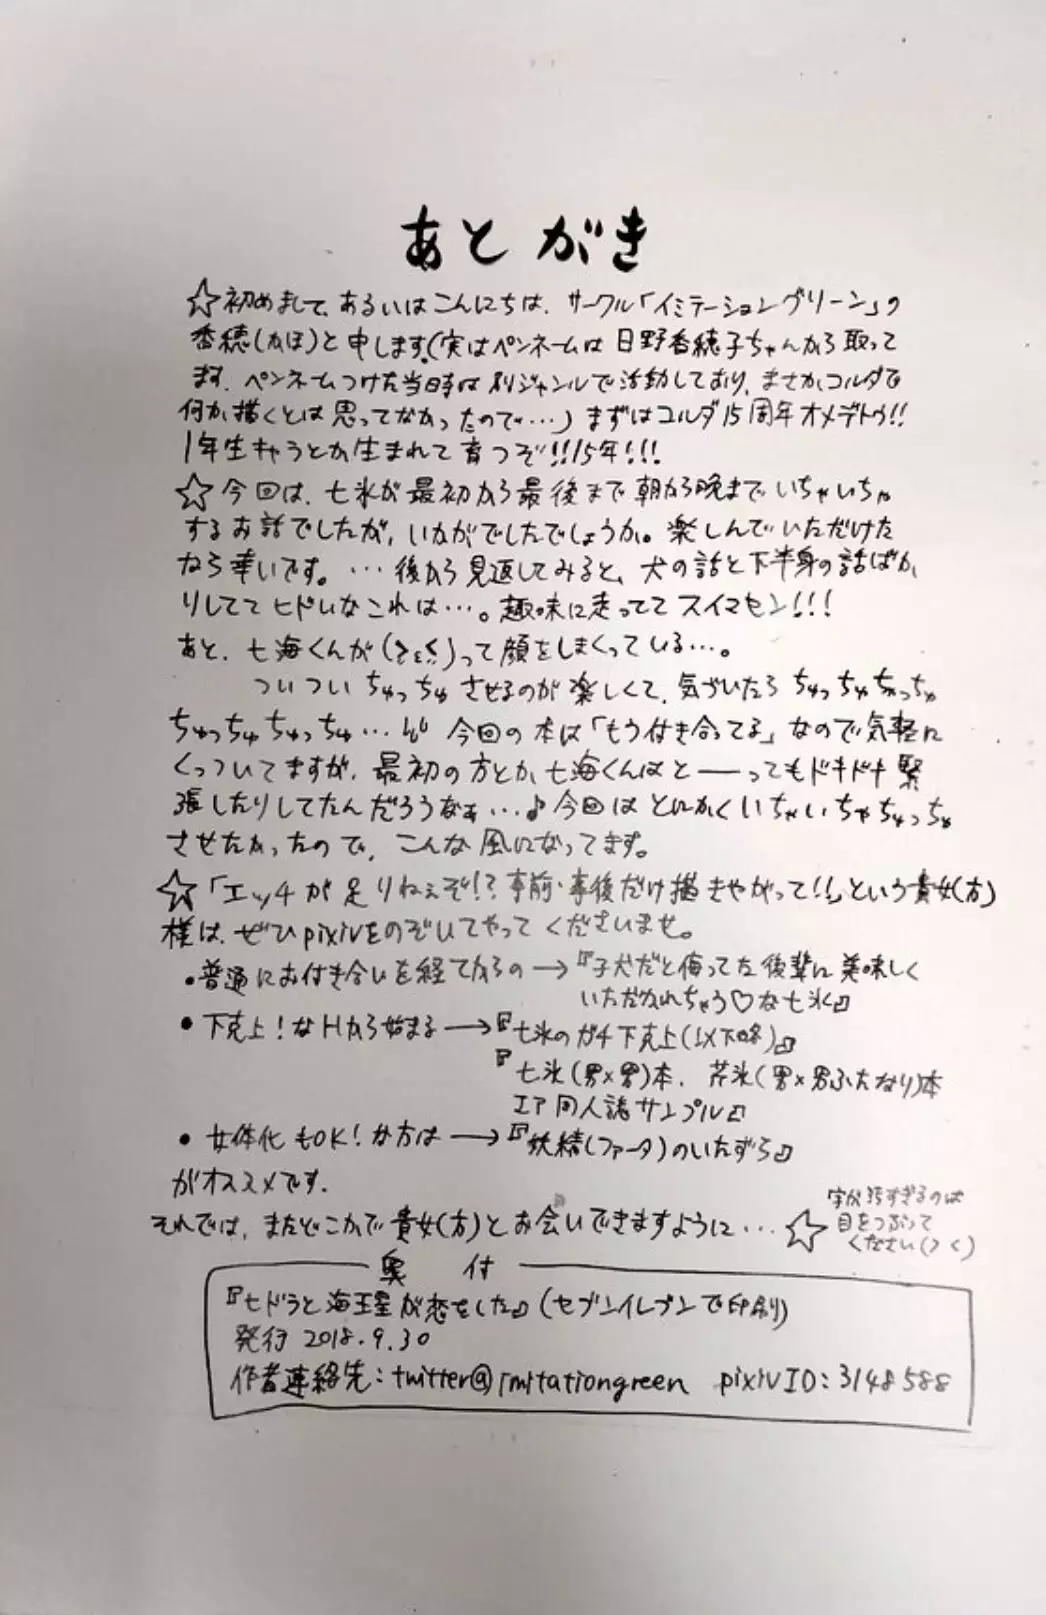 あとがき
☆初めまして、あるいはこんにちは、サークル「イミテーショングリーン」の
香穂(かほ)と申します。(実はペンネームは日野香穂子ちゃんから取って
ます、ペンネームつけた当時は別ジャンルで活動しており、まさかコルダで
何か描くとは思ってなかったので…)まずはコルダ15周年オメデトウ!!
1年生キャラとか生まれて育つぞ!!15年!!!
☆今回は、七氷が最初から最後まで朝から晩までいちゃいちゃ
するお話でしたが、いかがでしたでしょうか。楽しんでいただけた
なら幸いです。…後から見返してみると、犬の話と下半身の話ばか
りしててヒドいなこれは…。趣味に走っててスイマセン!!!
あと、七海くんが
って顔をしまくっている…。
ついついちゅっちゅさせるのが楽しくて、気づいたらちゅっちゅちゅっちゅ
ちゅっちゅちゅっちゅ…
今回の本は「もう付き合ってる」なので気軽に
くっついてますが、最初の方とか七海くんはと――ってもドキドキ緊
張したりしてたんだろうなぁ…♪今回はとにかくいちゃいちゃちゅっちゅ
させたかったので、こんな風になってます。
☆「エッチが足りねぇぞ!?事前・事後だけ描きやがって!!」という貴女(方)
様は、ぜひpixivをのぞいてやってくださいませ。
・普通にお付き合いを経てからの→『子犬だと侮ってた後輩に美味しく
いただかれちゃう♡な七氷』
・下克上!なHから始まる→『七氷のガチ下克上(以下略)』
『七氷(男×男)本、芹氷(男×男ふたなり)本
エア同人誌サンプル』
・女体化もOK!な方は→『妖精(ファータ)のいたずら』
がオススメです。
それでは、またどこかで貴女(方)とお会いできますように…☆
字が汚すぎるのは
目をつぶって
ください
奥付
『七ドラと海王星が恋をした』(セブンイレブンで印刷)
発行 2018.9.30
作者連絡先:twitter@imitationgreen pixivID:3148588